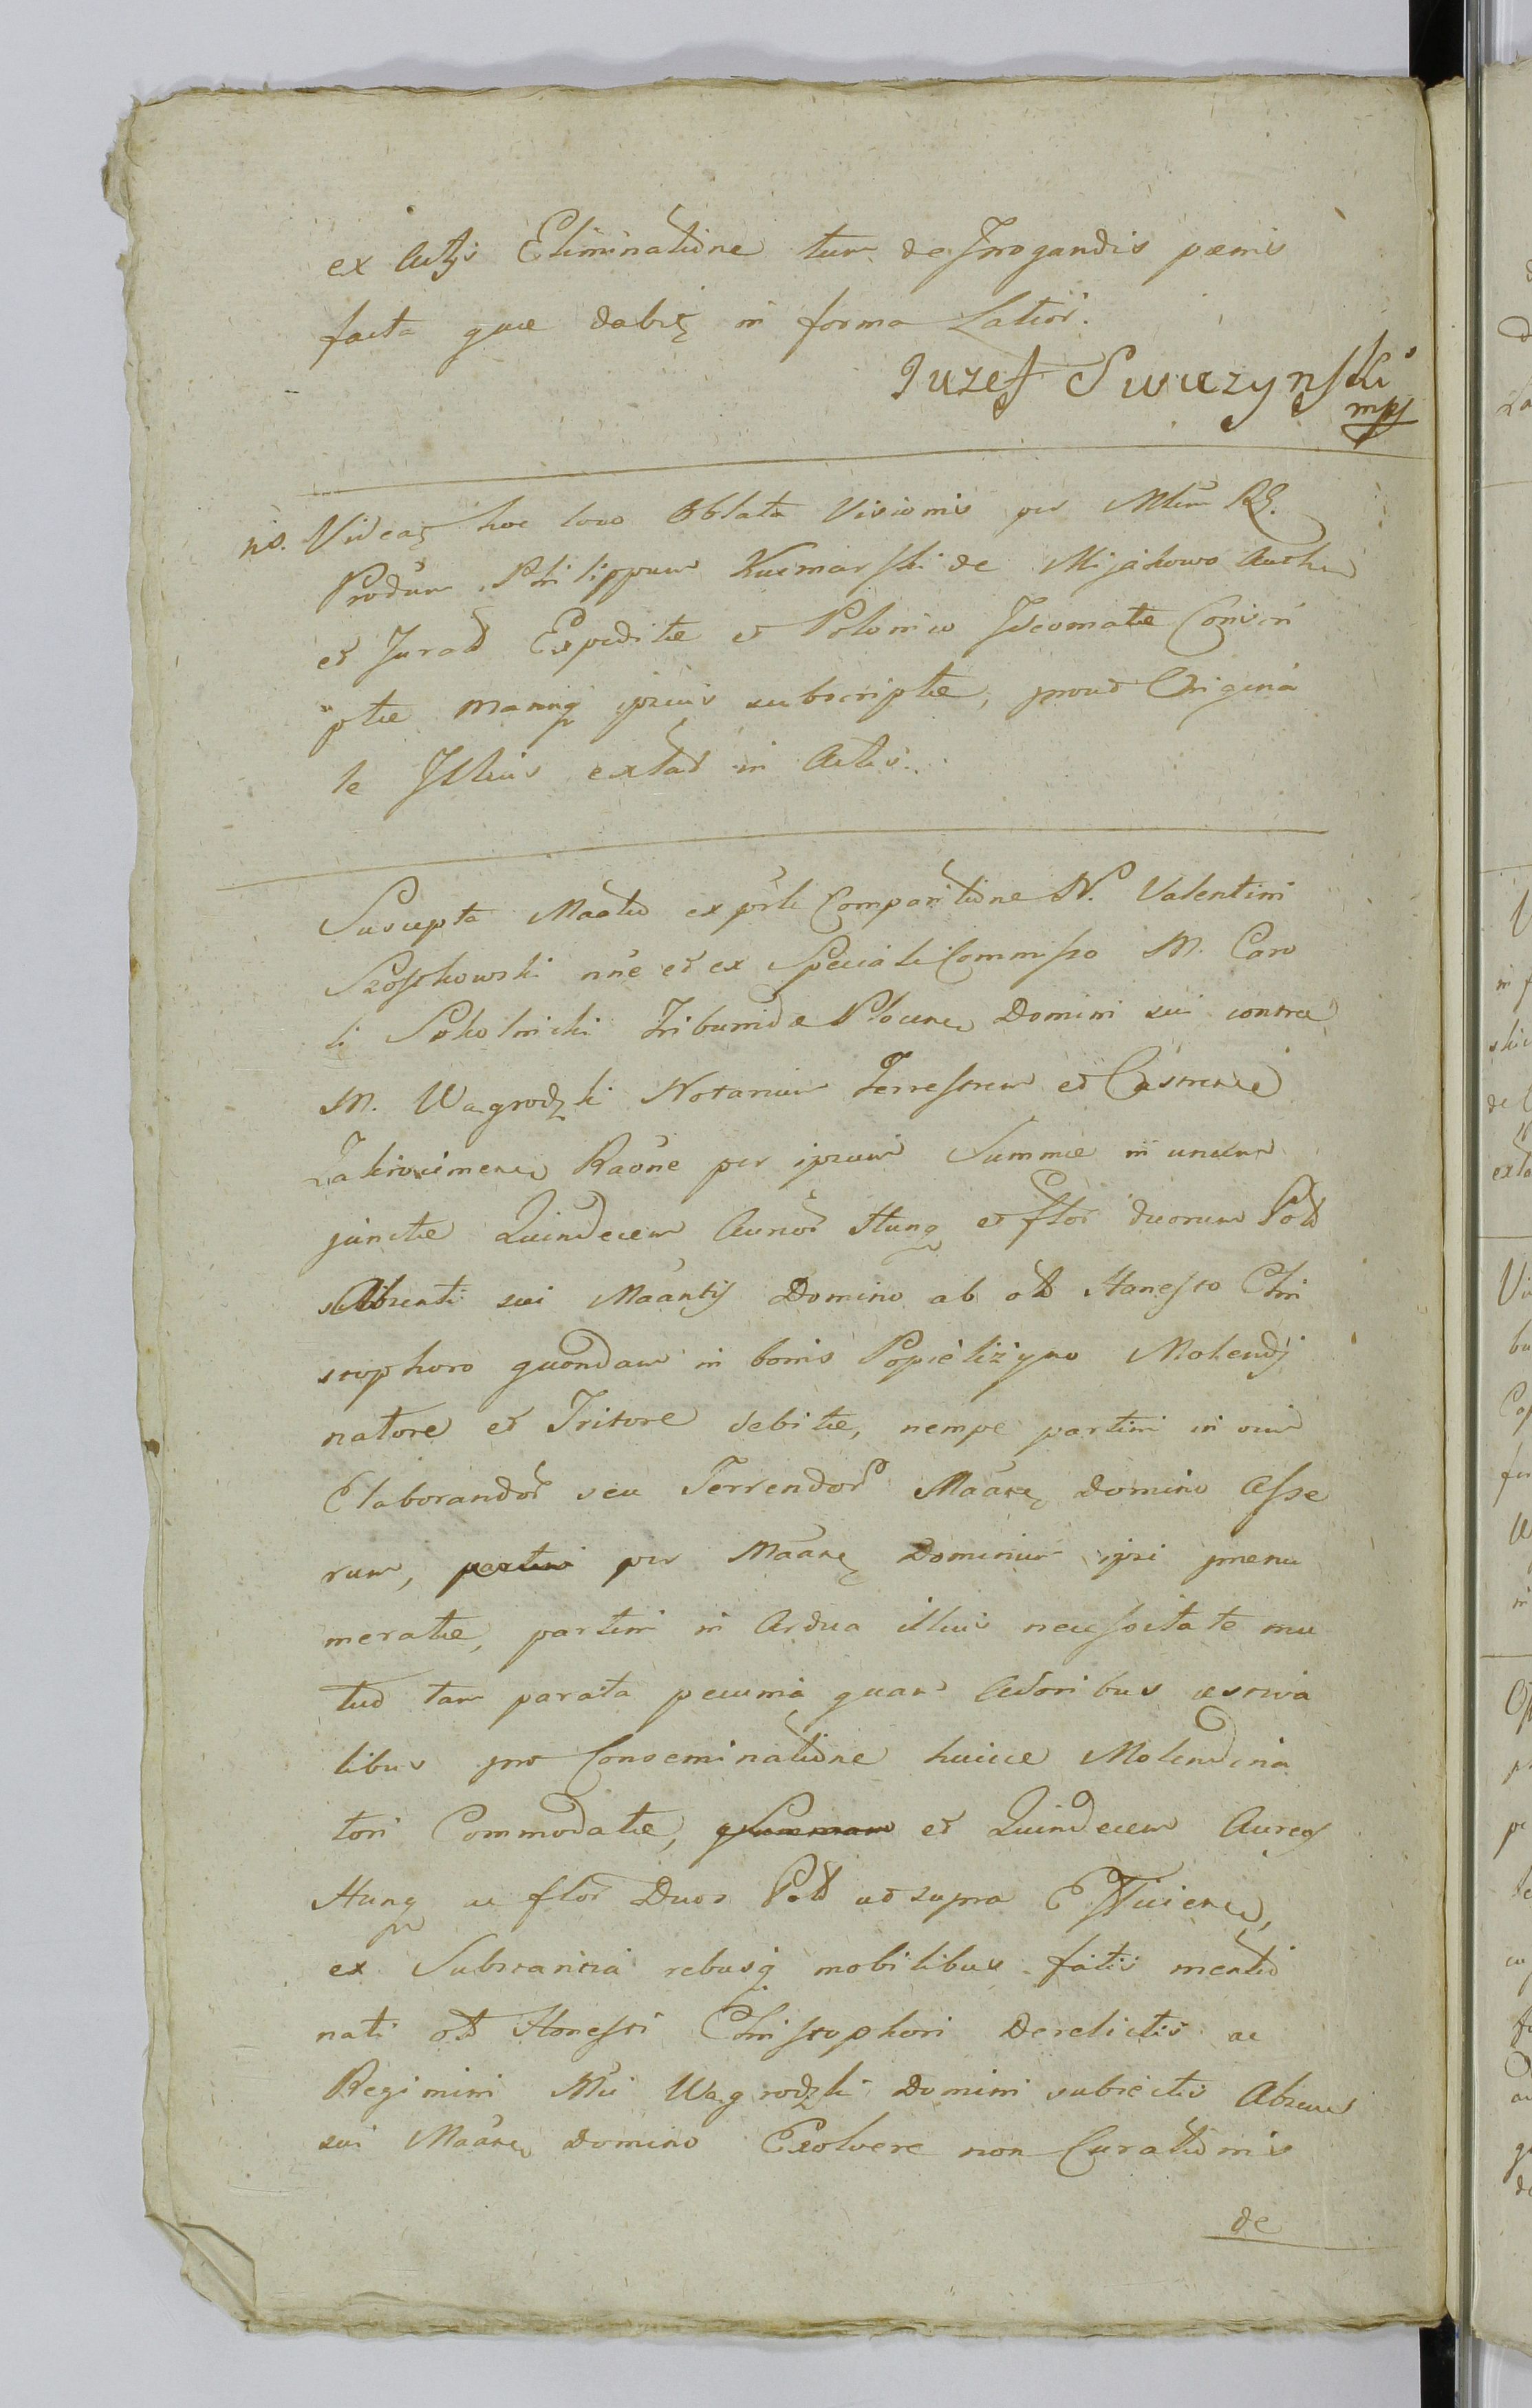 ex Actis Eliminatione tum de Irrogandis pœnis
facta quæ dabit̃ in forma Latiori.
Juzef Swiezynſki
mpp
ns. Videat̃ hoc loco Oblata Visionis per Mlem RG.
Prodũm Philippum Kucmarſki de Mijakowo Authen
et Jurat Expeditæ et Polonico Ideomate Conscri
"ptæ manuq̃ ipsius subscriptæ, prout Origina
le Illius extat in Actis.
Suscepta Maatio ex pr̃li Comparitione N. Valentini
Szoſtkowski nõe et ex Speciali Commiſso M. Caro
li Sokolnicki Tribunidæ Plocen Domini sui contra
M. Wagrodzki Notarium Terreſtrem et Castrense
Zakrocimen Raõne per ipsum Summæ in unum
junctæ Quindecem Aureor̃ Hung̃ et flor̃ duorum Pol̃
Absenti sui Maantis Domino ab ol̃ Honeſto Chri
stophoro quondam in bonis Popielizyno Molendi
natore et Tritore debitæ, nempe partim in vim
Elaborandor̃ seu Terrendor̃ Maañ Domino Aſse
rum, partim per Maañ Dominum ipsi prenu
meratæ, partim in Ardua illius neceſsitate mu
tuo tam parata pecunia quam Adoribus æstiva
libus pro Conseminatione huicce Molendina
tori Commodatæ, et Quindecem Aureos
Hung̃ ac flor̃ Duos Pol̃ ut supra Efficien,
ex Substantia rebusq̃ mobilibus fatis mentio
nati ol̃ Honeſti Chriſtophori Derelictis ac
Regimini Mci Wagrodzki Domini subiectis Absenti
sui Maañ Domino Exolvere non Curationis
de